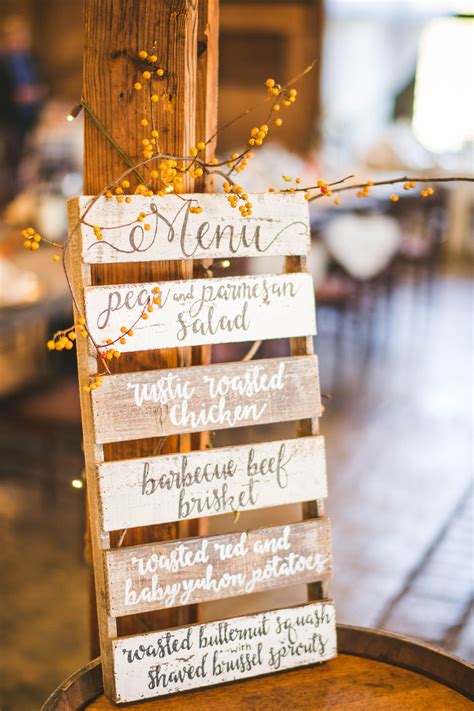 Menu
pear and parmesan
salad
rustic roasted
chicken
barbecue beef
brisket
roasted red and
baby yukon potatoes
roasted butternut squash
with
shaved brussel sprouts